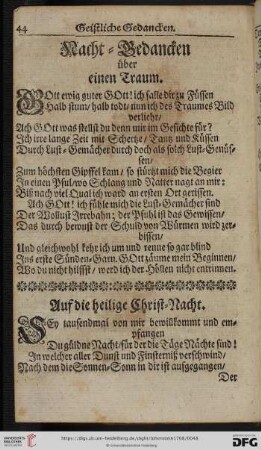 44 Geistliche Gedancken.
Nacht-Gedancken
über
einen Traum.
GOtt ewig guter GOtt! ich falle dir zu Füssen
Halb stum/ halb todt/ nun ich des Traumes Bild
verliehr/
Ach GOtt was stellst du denn mir im Gesichte für?
Ich irre lange Zeit mit Schertze/ Tantz und Küssen
Durch Lust-Gemächer durch doch als solch Lust-Genüs-
sen/
Zum höchsten Gipffel kam/ so stürtzt mich die Begier
In einen Pful/ wo Schlang und Natter nagt an mir:
Biß nach viel Qual ich ward an ersten Ort gerissen.
Ach GOtt! ich fühle mich die Lust-Gemächer sind
Der Wollust Irrebahn; der Pfuhl ist das Gewissen/
Das durch bewust der Schuld von Würmen wird zer-
bissen/
Und gleichwohl kehr ich um und renne so gar blind
Ins erste Sünden-Garn. GOtt zäume mein Beginnen/
Wo du nicht hilffst/ werd ich der Höllen nicht entrinnen.
Auf die heilige Christ-Nacht.
SEy tausendmal von mir bewillkommt und em-
pfangen
Du güldne Nacht/ für der die Täge Nächte sind!
In welcher aller Dunst und Finsterniß verschwind/
Nach dem die Sonnen-Sonn in dir ist aufgegangen/
Der
https://digi.ub.uni-heidelberg.de/diglit/lohenstein1708/0048
© Universitätsbibliothek Heidelberg
gefördert durch die
DFG